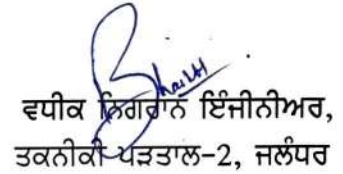 ਵਧੀਕ ਨਿਗਰਾਨ ਇੰਜੀਨੀਅਰ,
ਤਕਨੀਕੀ ਪੜਤਾਲ-2, ਜਲੰਧਰ